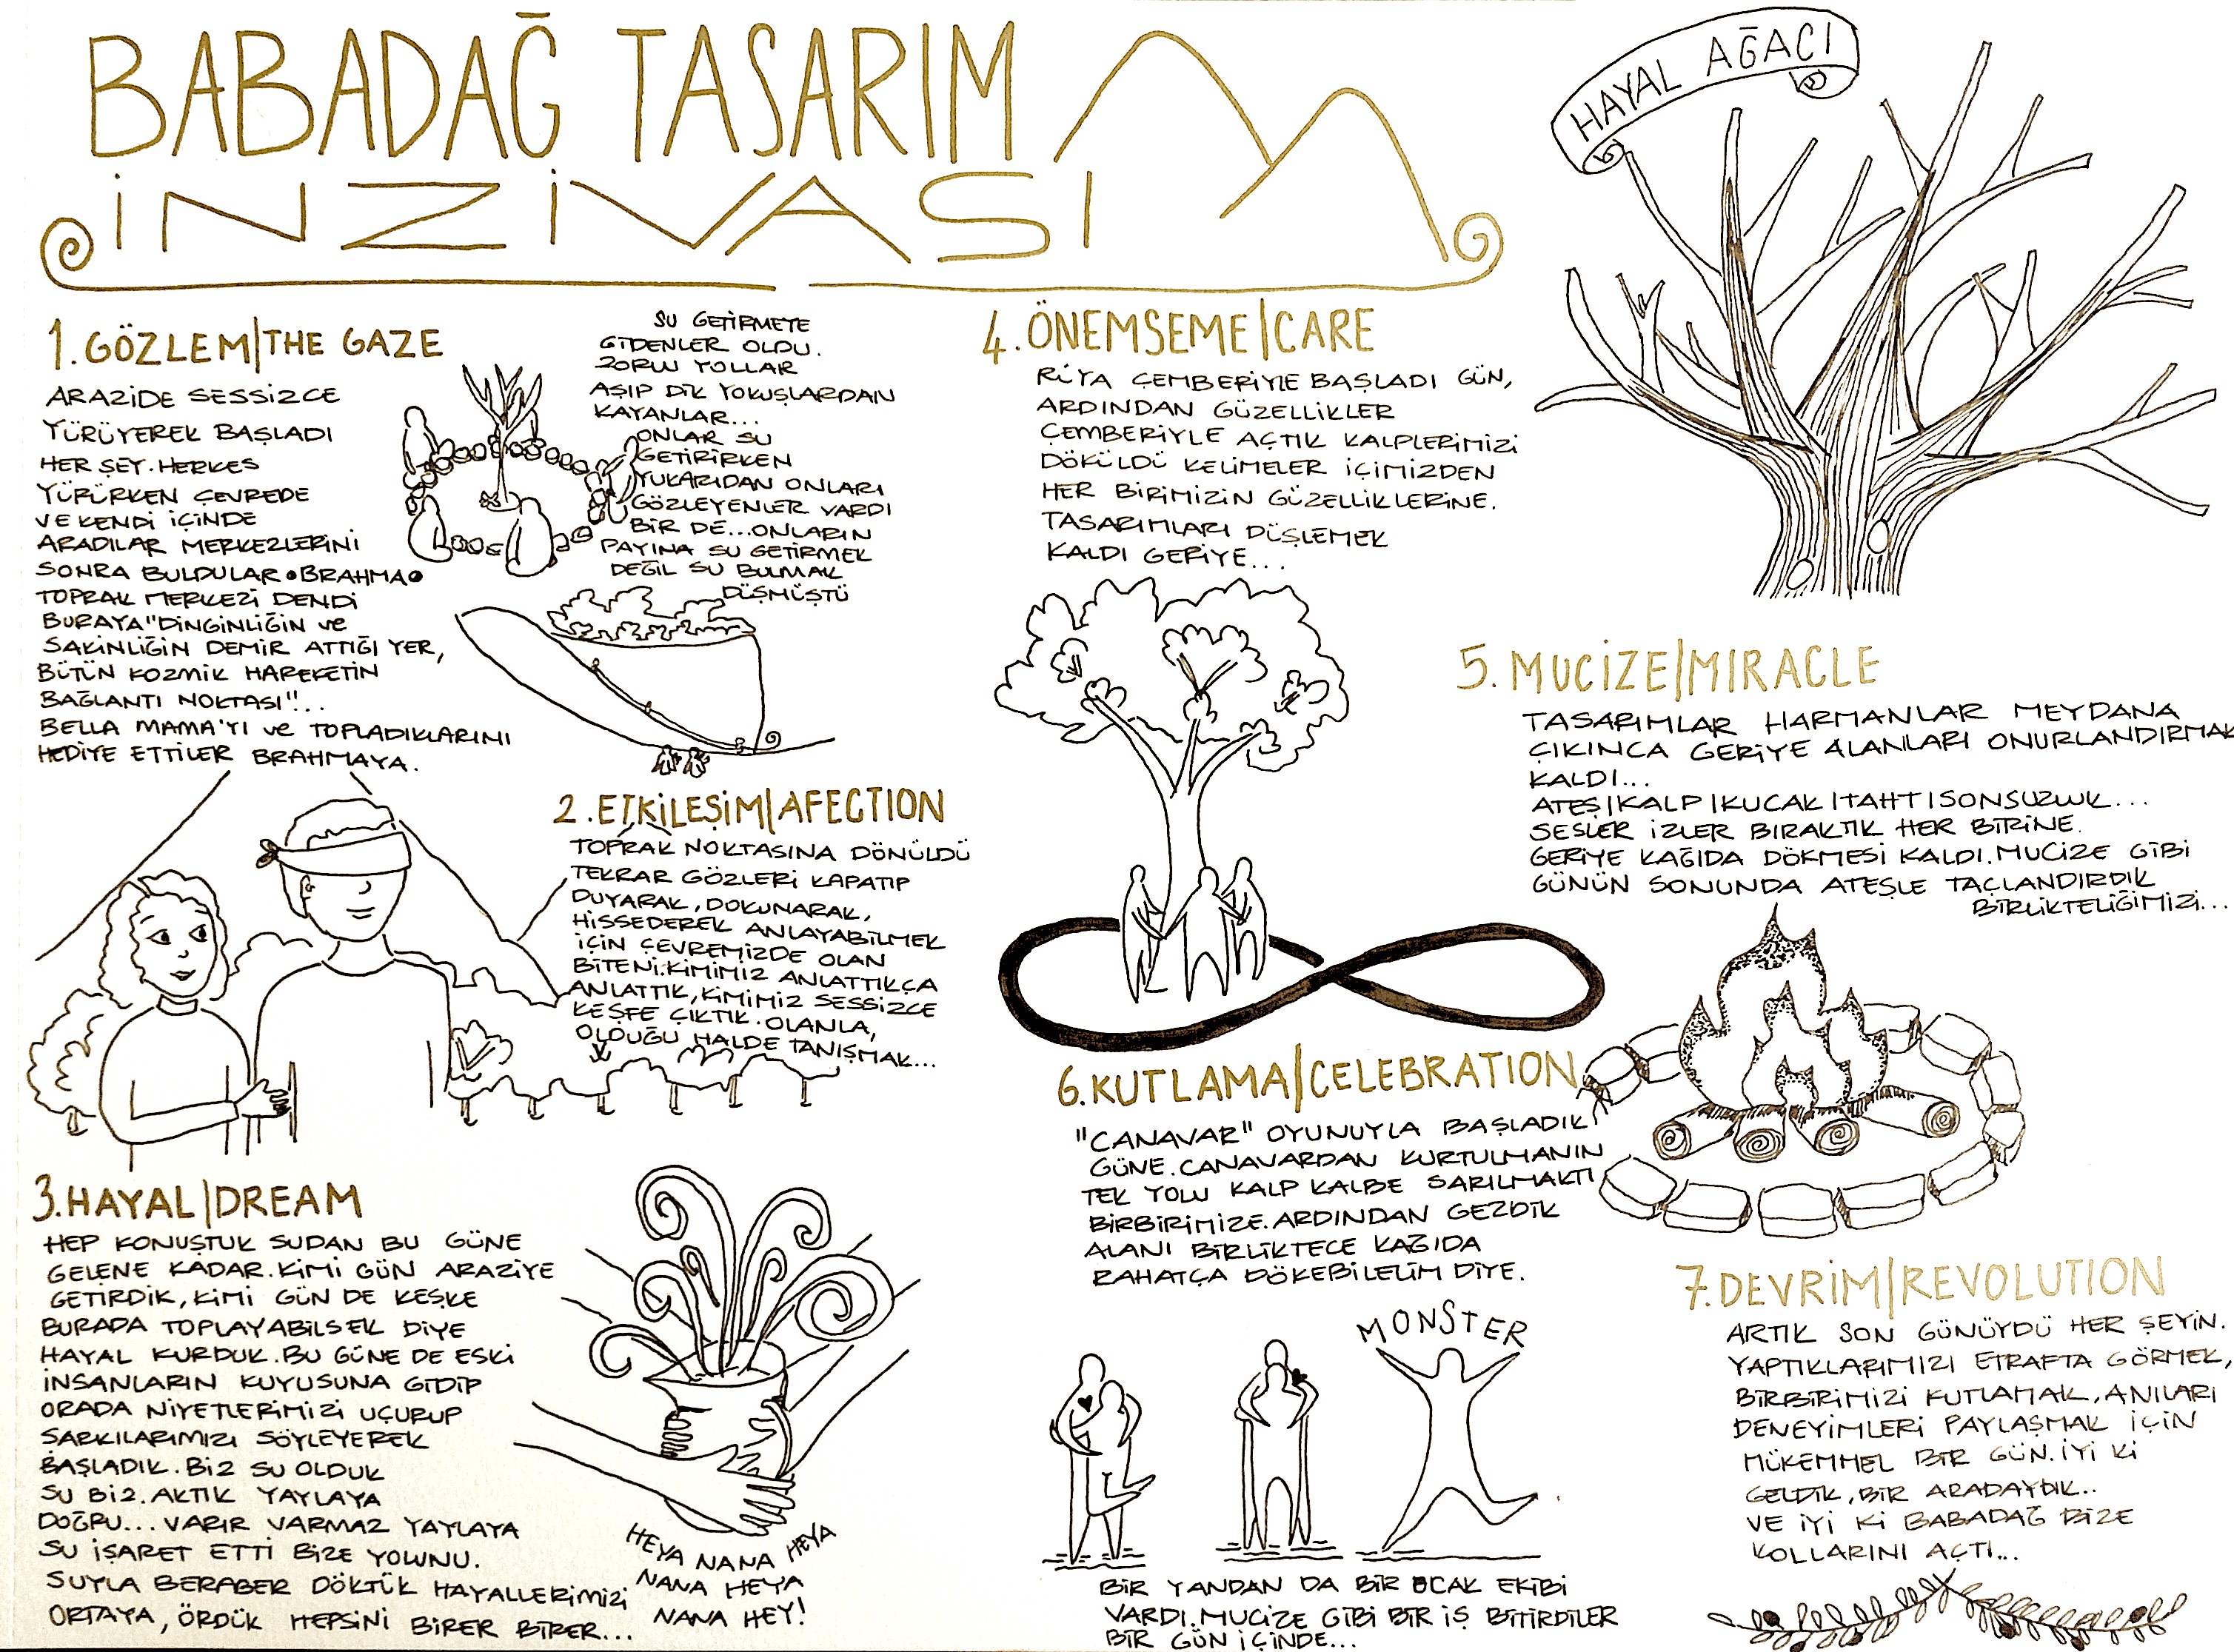 BABADAĞ TASARIM
İNZİVASI
HAYAL AĞACI
1.GÖZLEM|THE GAZE
ARAZİDE SESSİZCE
YÜRÜYEREK BAŞLADI
HER ŞEY. HERKES
YÜRÜRKEN ÇEVREDE
VE KENDİ İÇİNDE
ARADILAR MERKEZLERİNİ
SONRA BULDULAR •BRAHMA•
TOPRAK MERKEZİ DENDİ
BURAYA "DİNGİNLİĞİN ve
SAKİNLİĞİN DEMİR ATTIĞI YER,
BÜTÜN KOZMİK HAREKETİN
BAĞLANTI NOKTASI"...
BELLA MAMA'YI ve TOPLADIKLARINI
HEDİYE ETTİLER BRAHMAYA.
SU GETİRMEYE
GİDENLER OLDU.
ZORLU YOLLAR
AŞIP DİK YOKUŞLARDAN
KAYANLAR...
ONLAR SU
GETİRİRKEN
YUKARIDAN ONLARI
GÖZLEYENLER VARDI
BİR DE...ONLARIN
PAYINA SU GETİRMEK
DEĞİL SU BULMAK
DÜŞMÜŞTÜ
2.ETKİLEŞİM|AFECTION
TOPRAK NOKTASINA DÖNÜLDÜ
TEKRAR GÖZLERİ KAPATIP
DUYARAK, DOKUNARAK,
HİSSEDEREK ANLAYABİLMEK
İÇİN ÇEVREMİZDE OLAN
BİTENİ.KİMİMİZ ANLATTIKÇA
ANLATTIK, KİMİMİZ SESSİZCE
KEŞFE ÇIKTIK. OLANLA,
OLDUĞU HALDE TANIŞMAK...
3.HAYAL|DREAM
HEP KONUŞTUK SUDAN BU GÜNE
GELENE KADAR. KİMİ GÜN ARAZİYE
GETİRDİK, KİMİ GÜN DE KEŞKE
BURADA TOPLAYABİLSEK DİYE
HAYAL KURDUK. BU GÜNE DE ESKİ
İNSANLARIN KUYUSUNA GİDİP
ORADA NİYETLERİMİZİ UÇURUP
ŞARKILARIMIZI SÖYLEYEREK
BAŞLADIK. BİZ SU OLDUK
SU BİZ. AKTIK YAYLAYA
DOĞRU... VARIR VARMAZ YAYLAYA
SU İŞARET ETTİ BİZE YOLUNU.
SUYLA BERABER DÖKTÜK HAYALLERİMİZİ
ORTAYA, ÖRDÜK HEPSİNİ BİRER BİRER...
HEYA NANA HEYA
NANA HEYA
NANA HEY!
4.ÖNEMSEME|CARE
RÜYA ÇEMBERİYLE BAŞLADI GÜN,
ARDINDAN GÜZELLİKLER
ÇEMBERİYLE AÇTIK KALPLERİMİZİ
DÖKÜLDÜ KELİMELER İÇİMİZDEN
HER BİRİMİZİN GÜZELLİKLERİNE.
TASARIMLARI DÜŞLEMEK
KALDI GERİYE...
5.MUCİZE|MIRACLE
TASARIMLAR HARMANLAR MEYDANA
ÇIKINCA GERİYE ALANLARI ONURLANDIRMAK
KALDI...
ATEŞ|KALP|KUCAK|TAHT|SONSUZLUK...
SESLER İZLER BIRAKTIK HER BİRİNE.
GERİYE KAĞIDA DÖKMESİ KALDI. MUCİZE GİBİ
GÜNÜN SONUNDA ATEŞLE TAÇLANDIRDIK
BİRLİKTELİĞİMİZİ...
6.KUTLAMA|CELEBRATION
"CANAVAR" OYUNUYLA BAŞLADIK
GÜNE. CANAVARDAN KURTULMANIN
TEK YOLU KALP KALBE SARILMAKTI
BİRBİRİMİZE. ARDINDAN GEZDİK
ALANI BİRLİKTECE KAĞIDA
RAHATÇA DÖKEBİLELİM DİYE.
MONSTER
BİR YANDAN DA BİR OCAK EKİBİ
VARDI. MUCİZE GİBİ BİR İŞ BİTİRDİLER
BİR GÜN İÇİNDE...
7.DEVRİM|REVOLUTION
ARTIK SON GÜNÜYDÜ HER ŞEYİN.
YAPTIKLARIMIZI ETRAFTA GÖRMEK,
BİRBİRİMİZİ KUTLAMAK, ANILARI
DENEYİMLERİ PAYLAŞMAK İÇİN
MÜKEMMEL BİR GÜN. İYİ Kİ
GELDİK, BİR ARADAYDIK..
VE İYİ Kİ BABADAĞ BİZE
KOLLARINI AÇTI...